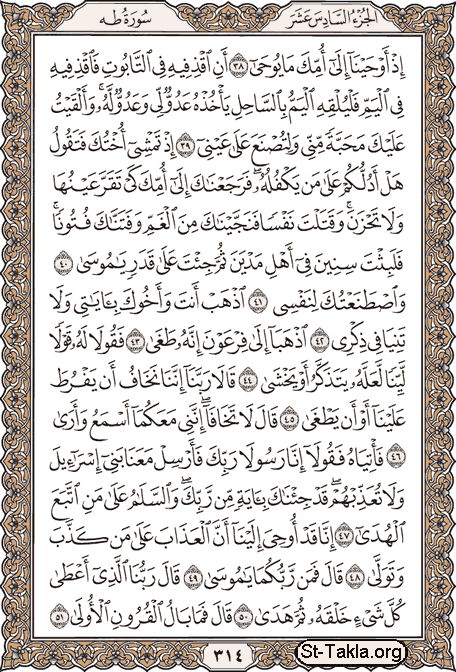 الجزء السادس عشر
سورة طه
إِذْ أَوْحَيْنَا إِلَىٰ أُمِّكَ مَا يُوحَىٰ ٣٨ أَنِ اقْذِفِيهِ فِي التَّابُوتِ فَاقْذِفِيهِ
فِي الْيَمِّ فَلْيُلْقِهِ الْيَمُّ بِالسَّاحِلِ يَأْخُذْهُ عَدُوٌّ لِّي وَعَدُوٌّ لَّهُ ۚ وَأَلْقَيْتُ
عَلَيْكَ مَحَبَّةً مِّنِّي وَلِتُصْنَعَ عَلَىٰ عَيْنِي ٣٩ إِذْ تَمْشِي أُخْتُكَ فَتَقُولُ
هَلْ أَدُلُّكُمْ عَلَىٰ مَن يَكْفُلُهُ ۖ فَرَجَعْنَاكَ إِلَىٰ أُمِّكَ كَيْ تَقَرَّ عَيْنُهَا
وَلَا تَحْزَنَ ۚ وَقَتَلْتَ نَفْسًا فَنَجَّيْنَاكَ مِنَ الْغَمِّ وَفَتَنَّاكَ فُتُونًا ۚ
فَلَبِثْتَ سِنِينَ فِي أَهْلِ مَدْيَنَ ثُمَّ جِئْتَ عَلَىٰ قَدَرٍ يَا مُوسَىٰ ٤٠
وَاصْطَنَعْتُكَ لِنَفْسِي ٤١ اذْهَبْ أَنتَ وَأَخُوكَ بِآيَاتِي وَلَا
تَنِيَا فِي ذِكْرِي ٤٢ اذْهَبَا إِلَىٰ فِرْعَوْنَ إِنَّهُ طَغَىٰ ٤٣ فَقُولَا لَهُ قَوْلًا
لَّيِّنًا لَّعَلَّهُ يَتَذَكَّرُ أَوْ يَخْشَىٰ ٤٤ قَالَا رَبَّنَا إِنَّنَا نَخَافُ أَن يَفْرُطَ
عَلَيْنَا أَوْ أَن يَطْغَىٰ ٤٥ قَالَ لَا تَخَافَا ۖ إِنَّنِي مَعَكُمَا أَسْمَعُ وَأَرَىٰ
٤٦ فَأْتِيَاهُ فَقُولَا إِنَّا رَسُولَا رَبِّكَ فَأَرْسِلْ مَعَنَا بَنِي إِسْرَائِيلَ
وَلَا تُعَذِّبْهُمْ ۖ قَدْ جِئْنَاكَ بِآيَةٍ مِّن رَّبِّكَ ۖ وَالسَّلَامُ عَلَىٰ مَنِ اتَّبَعَ
الْهُدَىٰ ٤٧ إِنَّا قَدْ أُوحِيَ إِلَيْنَا أَنَّ الْعَذَابَ عَلَىٰ مَن كَذَّبَ
وَتَوَلَّىٰ ٤٨ قَالَ فَمَن رَّبُّكُمَا يَا مُوسَىٰ ٤٩ قَالَ رَبُّنَا الَّذِي أَعْطَىٰ
كُلَّ شَيْءٍ خَلْقَهُ ثُمَّ هَدَىٰ ٥٠ قَالَ فَمَا بَالُ الْقُرُونِ الْأُولَىٰ ٥١
٣١٤
St-Takla.org